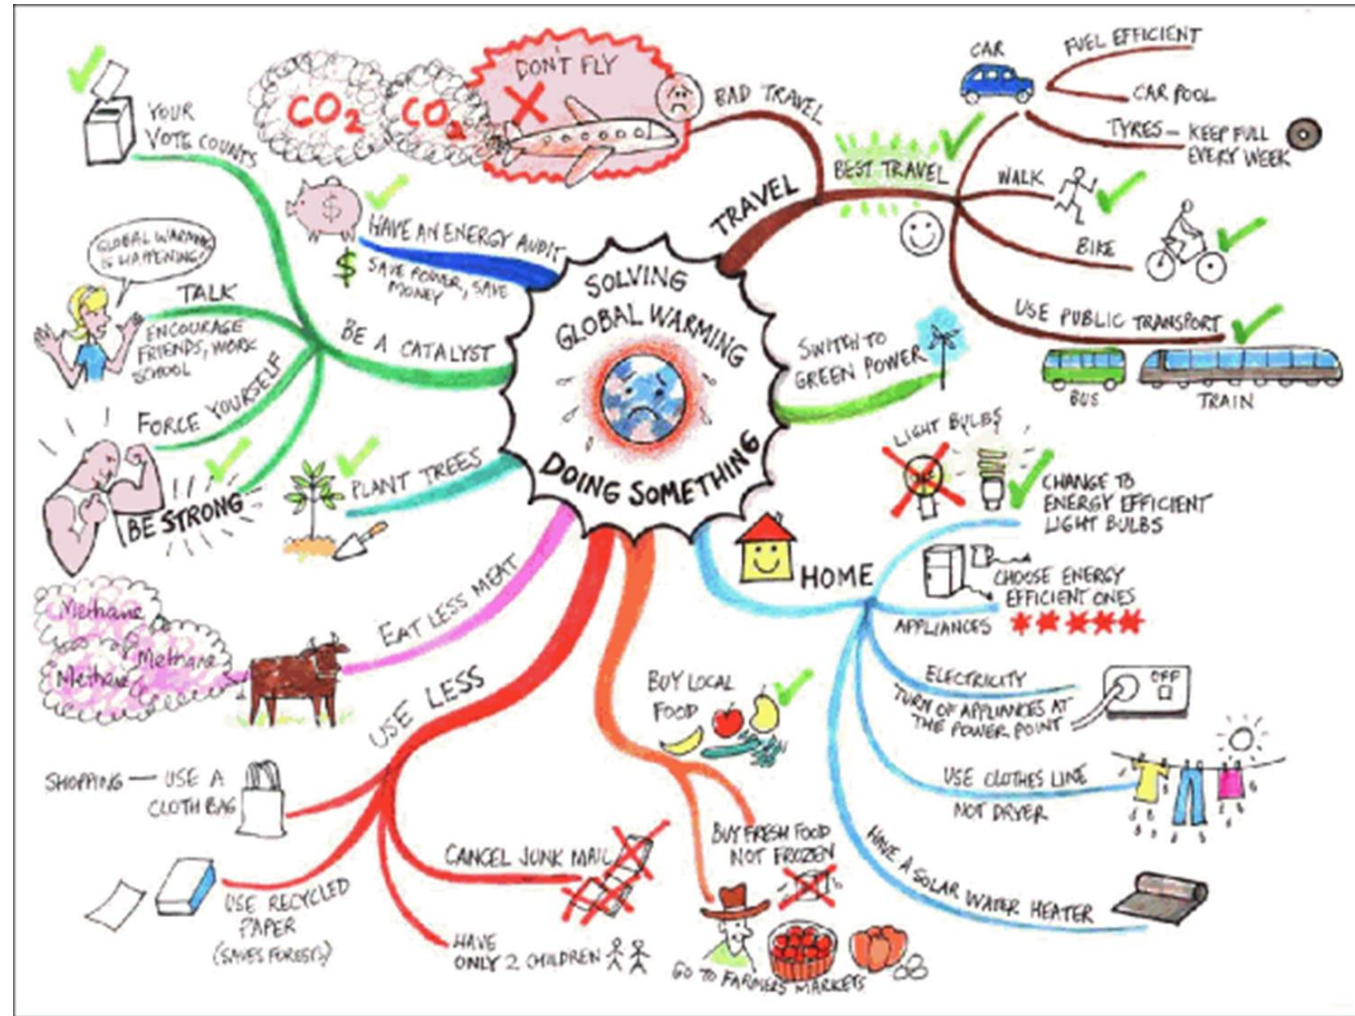 SOLVING
GLOBAL WARMING
DOING SOMETHING
TRAVEL
BAD TRAVEL
DON'T FLY
CO2
CO2
BEST TRAVEL
CAR
FUEL EFFICIENT
CAR POOL
TYRES – KEEP FULL
EVERY WEEK
WALK
BIKE
USE PUBLIC TRANSPORT
BUS
TRAIN
SWITCH TO
GREEN POWER
HOME
LIGHT BULBS
CHANGE TO
ENERGY EFFICIENT
LIGHT BULBS
CHOOSE ENERGY
EFFICIENT ONES
APPLIANCES
ELECTRICITY
TURN OF APPLIANCES AT
THE POWER POINT
OFF
USE CLOTHES LINE
NOT DRYER
HAVE A SOLAR WATER HEATER
BUY LOCAL
FOOD
BUY FRESH FOOD
NOT FROZEN
GO TO FARMERS MARKETS
USE LESS
CANCEL JUNK MAIL
HAVE
ONLY 2 CHILDREN
USE RECYCLED
PAPER
(SAVES FORESTS)
SHOPPING — USE A
CLOTH BAG
EAT LESS MEAT
Methane
Methane
Methane
PLANT TREES
BE A CATALYST
YOUR
VOTE COUNTS
TALK
ENCOURAGE
FRIENDS, WORK
SCHOOL
GLOBAL WARMING
IS HAPPENING!
FORCE YOURSELF
BE STRONG
HAVE AN ENERGY AUDIT
SAVE POWER, SAVE
MONEY
$
$